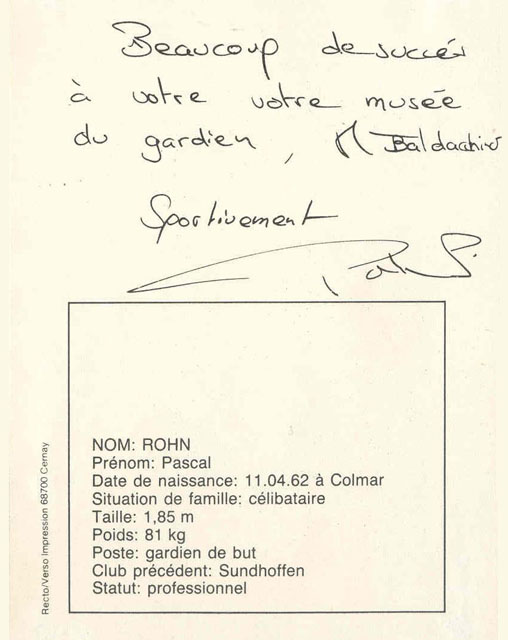 Beaucoup de succés
à votre votre musée
du gardien, M Baldacchino
Sportivement
NOM: ROHN
Prénom: Pascal
Date de naissance: 11.04.62 à Colmar
Situation de famille: célibataire
Taille: 1,85 m
Poids: 81 kg
Poste: gardien de but
Club précédent: Sundhoffen
Statut: professionnel
Recto/Verso Impression 68700 Cernay